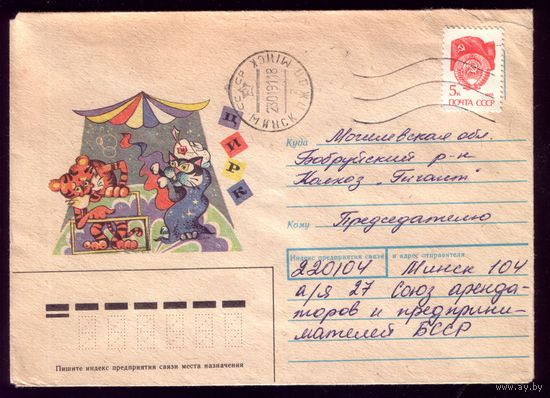 5к
ПОЧТА СССР
МИНСК
23019118
МИНСК
ЦИРК
Куда Могилевская обл.
Бобруйский р-н
Колхоз "Гигант"
Кому Председателю
Индекс предприятия связи и адрес отправителя
220104 Минск 104
а/я 27 Союз аренда-
торов и предприни-
мателей БССР
Пишите индекс предприятия связи места назначения
www.ay.by